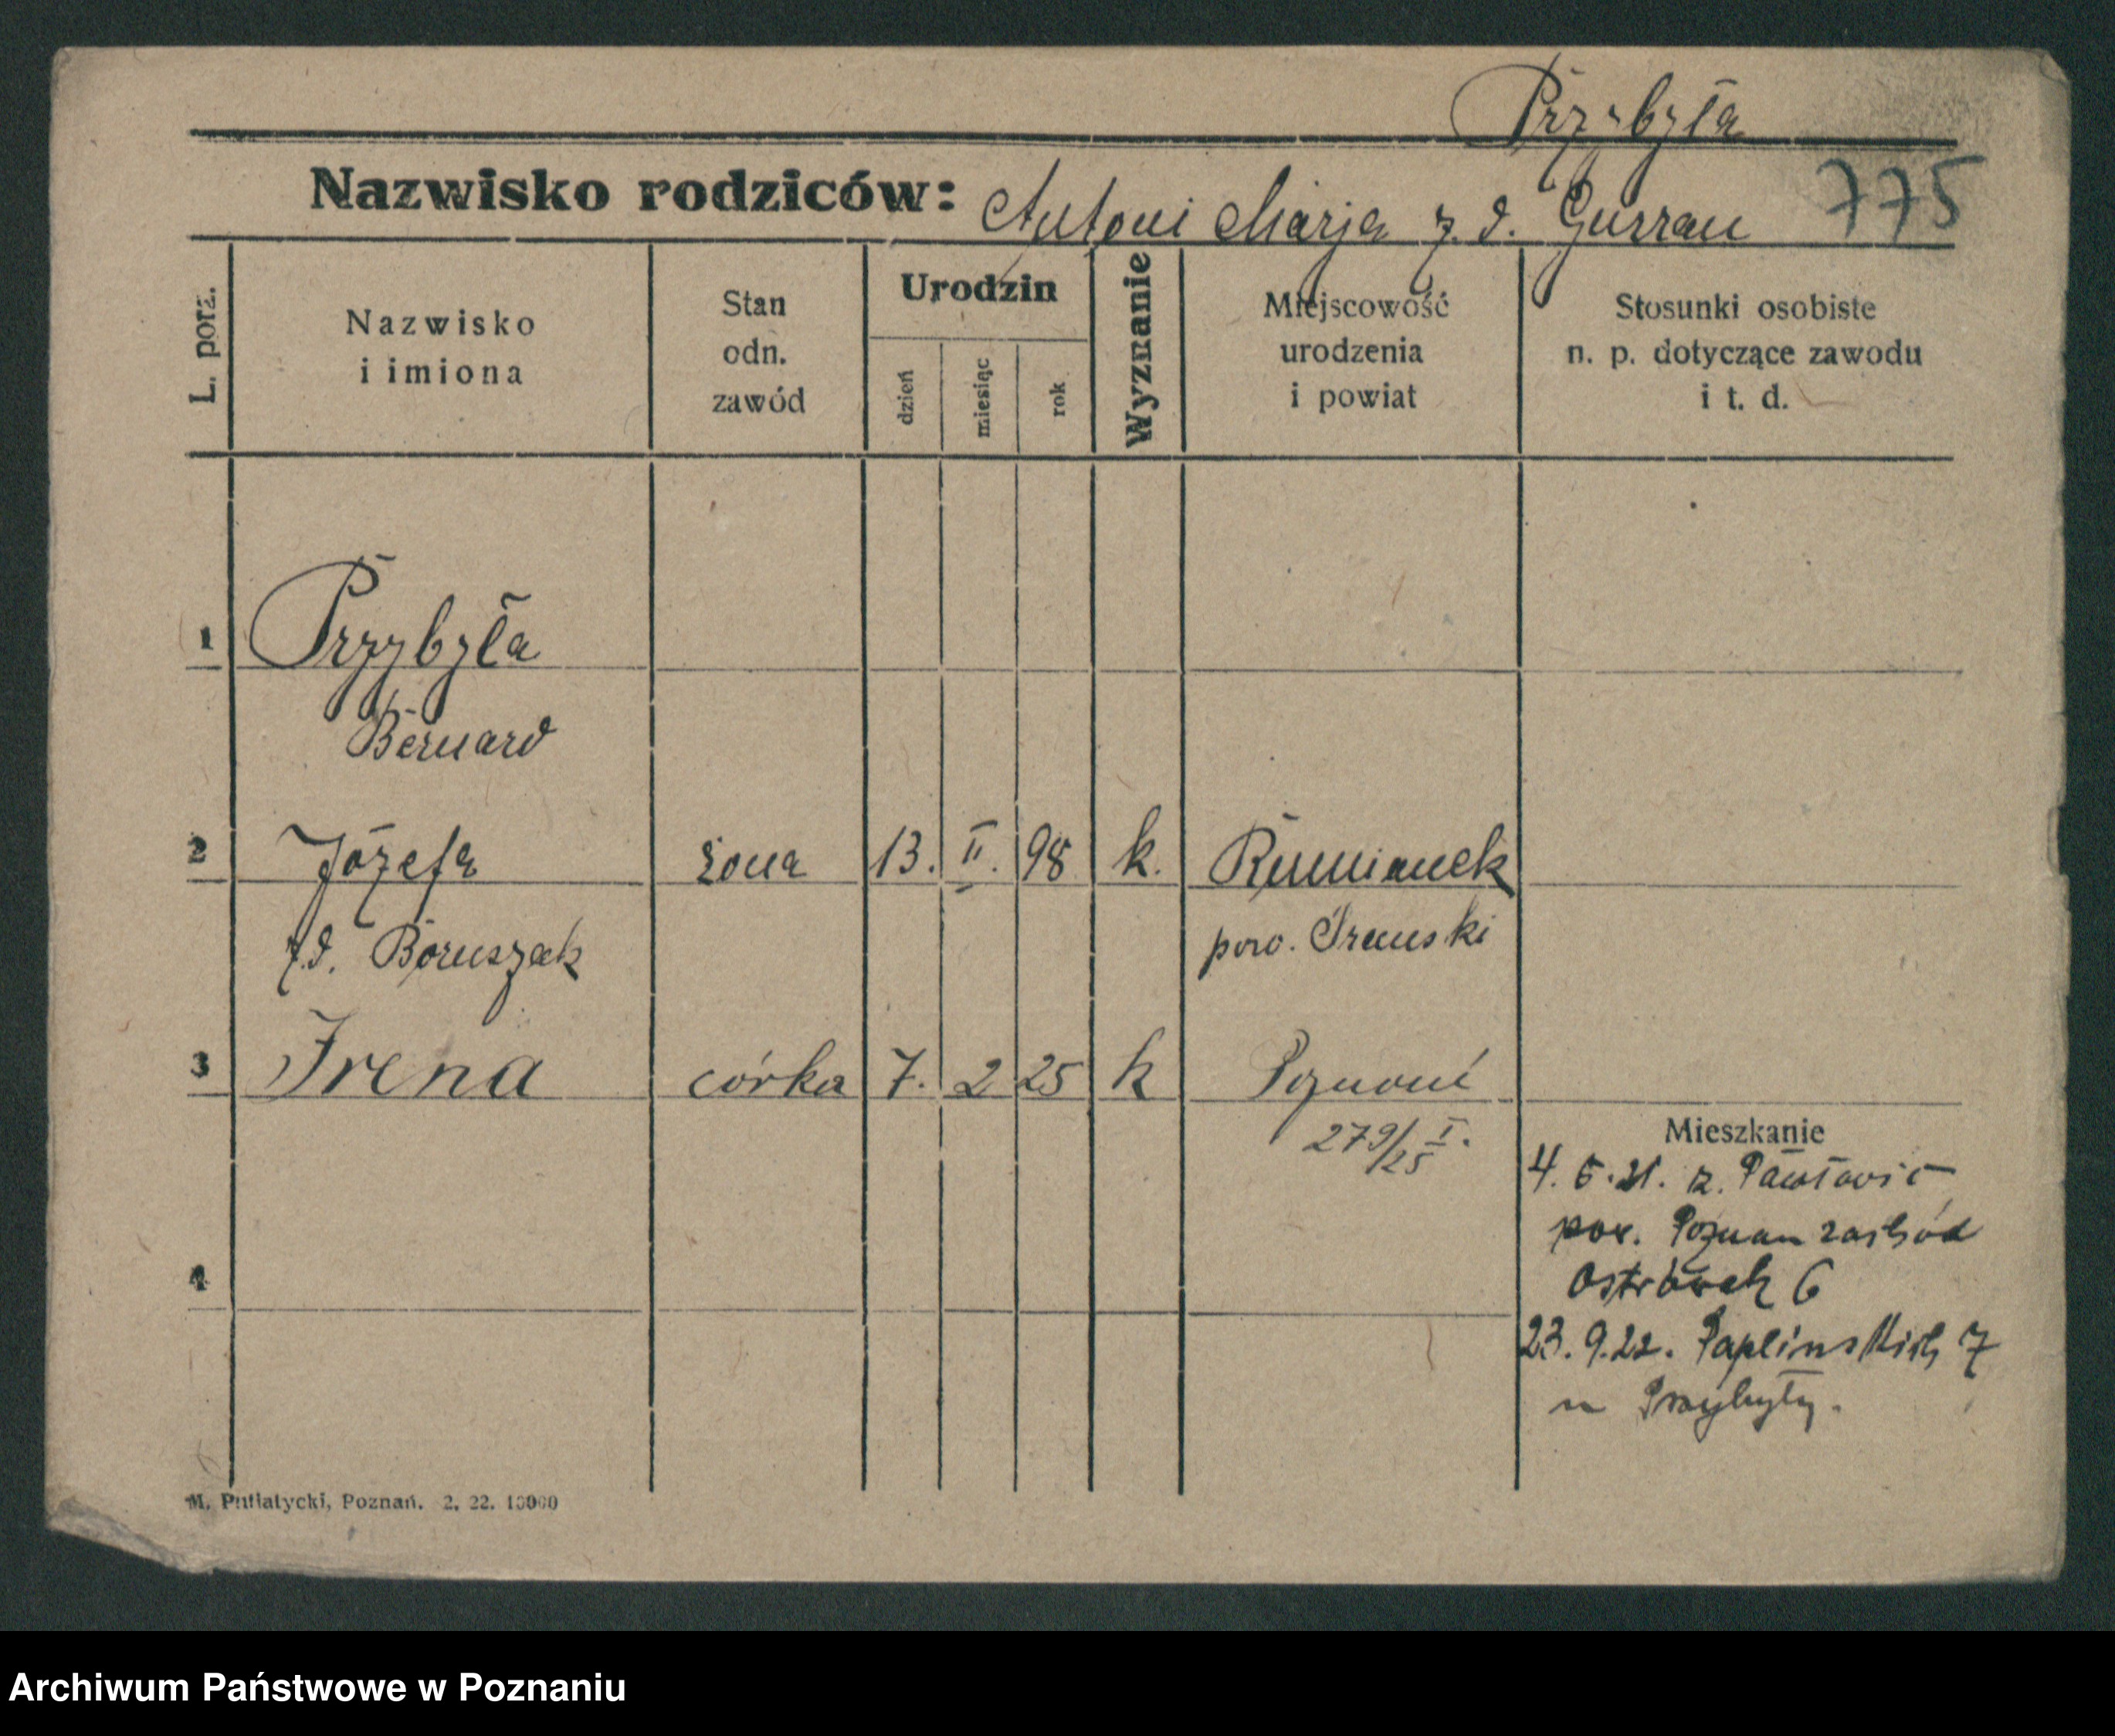 Przybyła
Nazwisko rodziców: Antoni Marja z. d. Gurzau 775
L. porz.
Nazwisko
i imiona
Stan
odn.
zawód
Urodzin
dzień
miesiąc
rok
Wyznanie
Miejscowość
urodzenia
i powiat
Stosunki osobiste
n. p. dotyczące zawodu
i t. d.
1 Przybyła
Bernard
2 Józefa żona 13. II. 98 k. Rumianek
z. d. Boruszak pow.
3 Irena córka 7. 2 25 k Poznań
279/25 I.
Mieszkanie
4. 5. 21. z.
pow. Poznan zachód
Ostrówek 6
4
23. 9. 22. 7
u Przybyły.
M. Putiatycki, Poznań. 2. 22. 10000
Archiwum Państwowe w Poznaniu